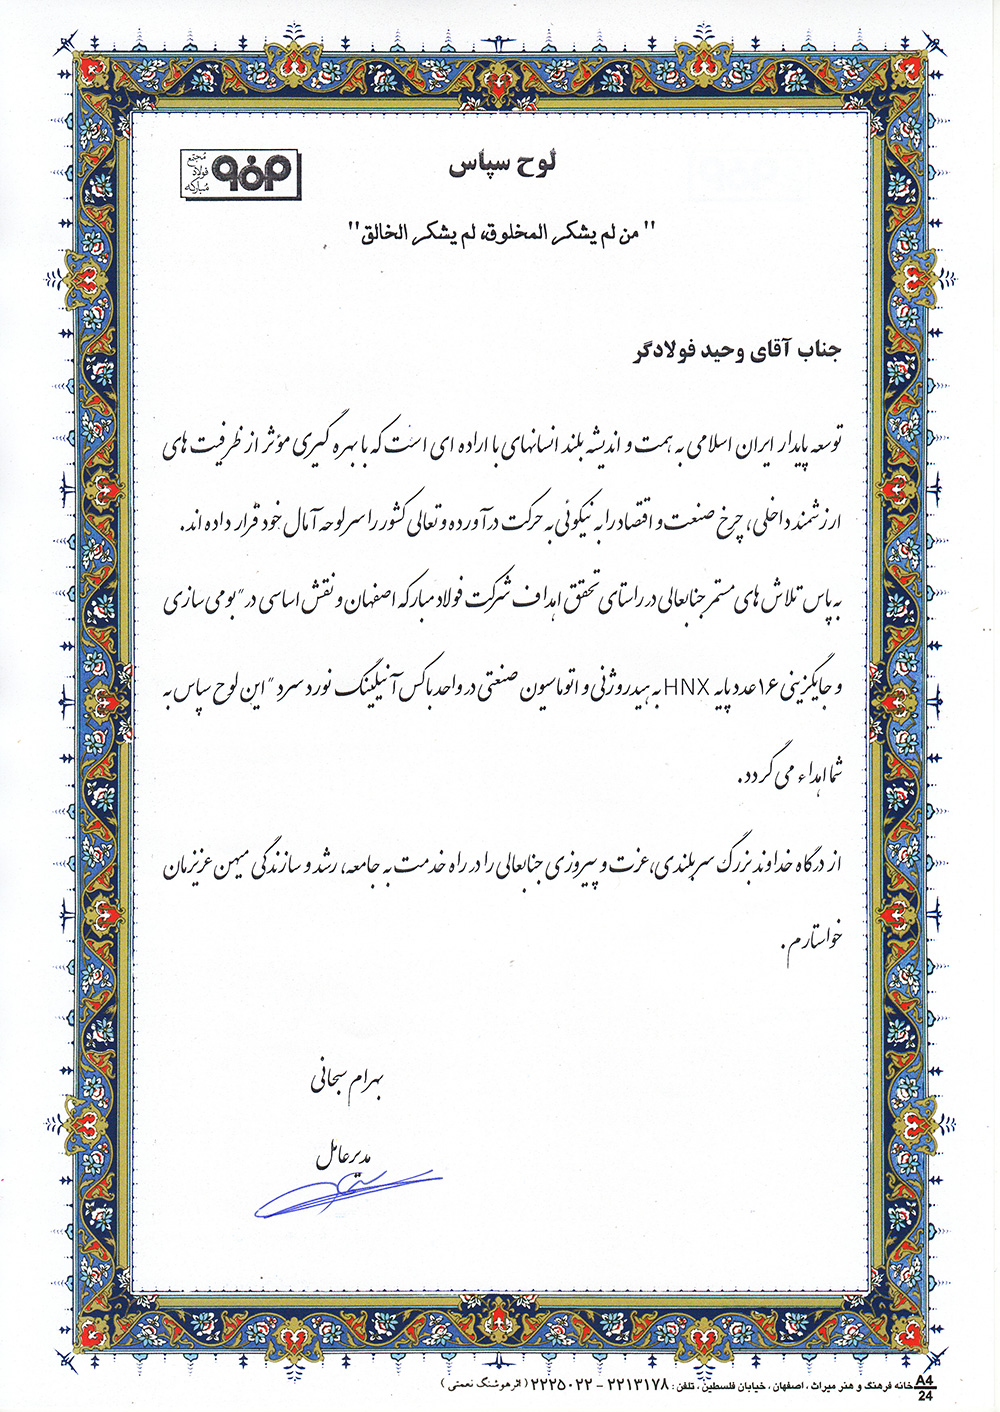 لوح سپاس
مجتمع
فولاد
مبارکه
" من لم یشکر المخلوق، لم یشکر الخالق "
جناب آقای وحید فولادگر
توسعه پایدار ایران اسلامی به همت و اندیشه بلند انسانهای با اراده ای است که با بهره گیری مؤثر از ظرفیت های
ارزشمند داخلی، چرخ صنعت و اقتصاد را به نیکوئی به حرکت درآورده و تعالی کشور را سرلوحه آمال خود قرار داده اند.
به پاس تلاش های مستمر جنابعالی در راستای تحقق اهداف شرکت فولاد مبارکه اصفهان و نقش اساسی در "بومی سازی
و جایگزینی ۱۶ عدد پایه HNX به هیدروژنی و اتوماسیون صنعتی در واحد باکس آنیلینگ نورد سرد" این لوح سپاس به
شما اهداء می گردد.
از درگاه خداوند بزرگ سربلندی، عزت و پیروزی جنابعالی را در راه خدمت به جامعه، رشد و سازندگی میهن عزیزمان
خواستارم.
بهرام سبحانی
مدیرعامل
خانه فرهنگ و هنر میراث ، اصفهان ، خیابان فلسطین ، تلفن : ۲۲۱۳۱۷۸ - ۲۲۲۵۰۲۲ ( اثر هوشنگ نعمتی )
A4
24